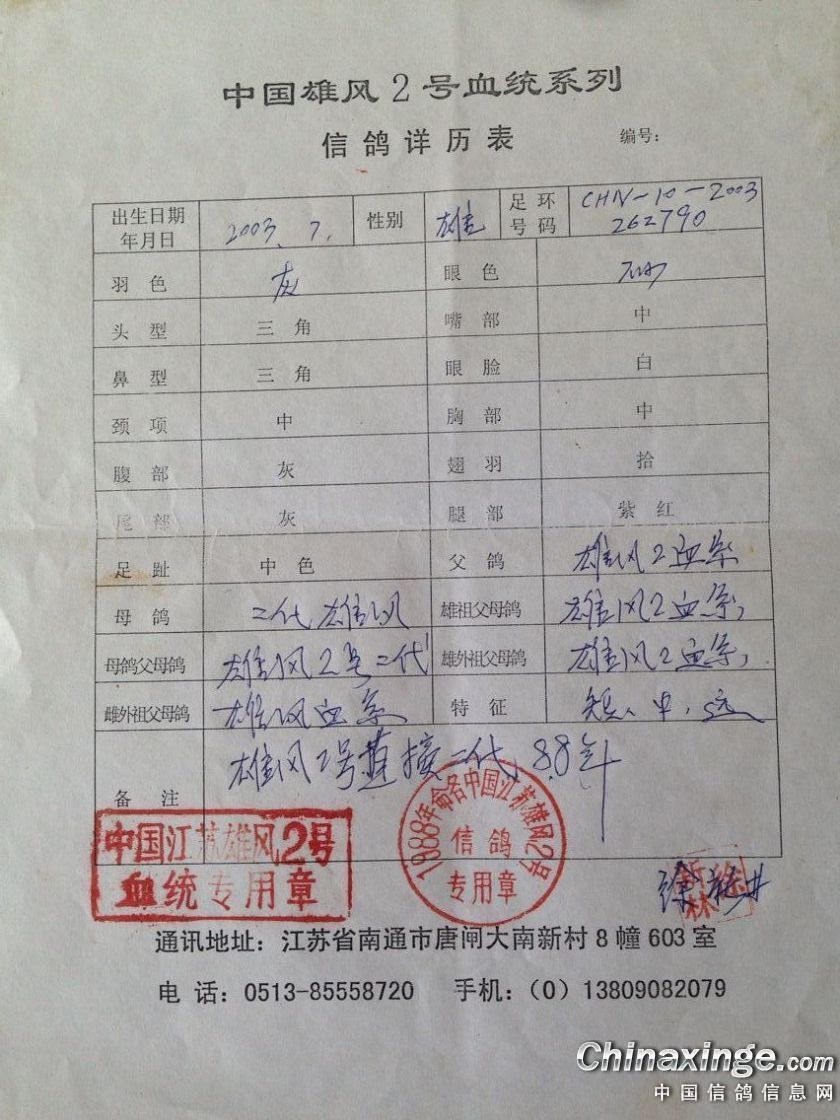 中国雄风2号血统系列
信鸽详历表
编号：
出生日期年月日 2003.7. 性别 雄 足环号码 CHN-10-2003 262790
羽色 灰 眼色
头型 三角 嘴部 中
鼻型 三角 眼脸 白
颈项 中 胸部 中
腹部 灰 翅羽 拾
尾部 灰 腿部 紫红
足趾 中色 父鸽 雄风2血系
母鸽 二代雄风 雄祖父母鸽 雄风2血系,
母鸽父母鸽 雄风2号二代 雄外祖父母鸽 雄风2血系,
雌外祖父母鸽 雄风血系 特征 短、中、远
备注 雄风2号直接二代、88年
中国江苏雄风2号
血统专用章
1988年命名中国江苏雄风2号
信鸽
专用章
徐
通讯地址：江苏省南通市唐闸大南新村8幢603室
电话：0513-85558720 手机：（0）13809082079
Chinaxinge.com
中国信鸽信息网